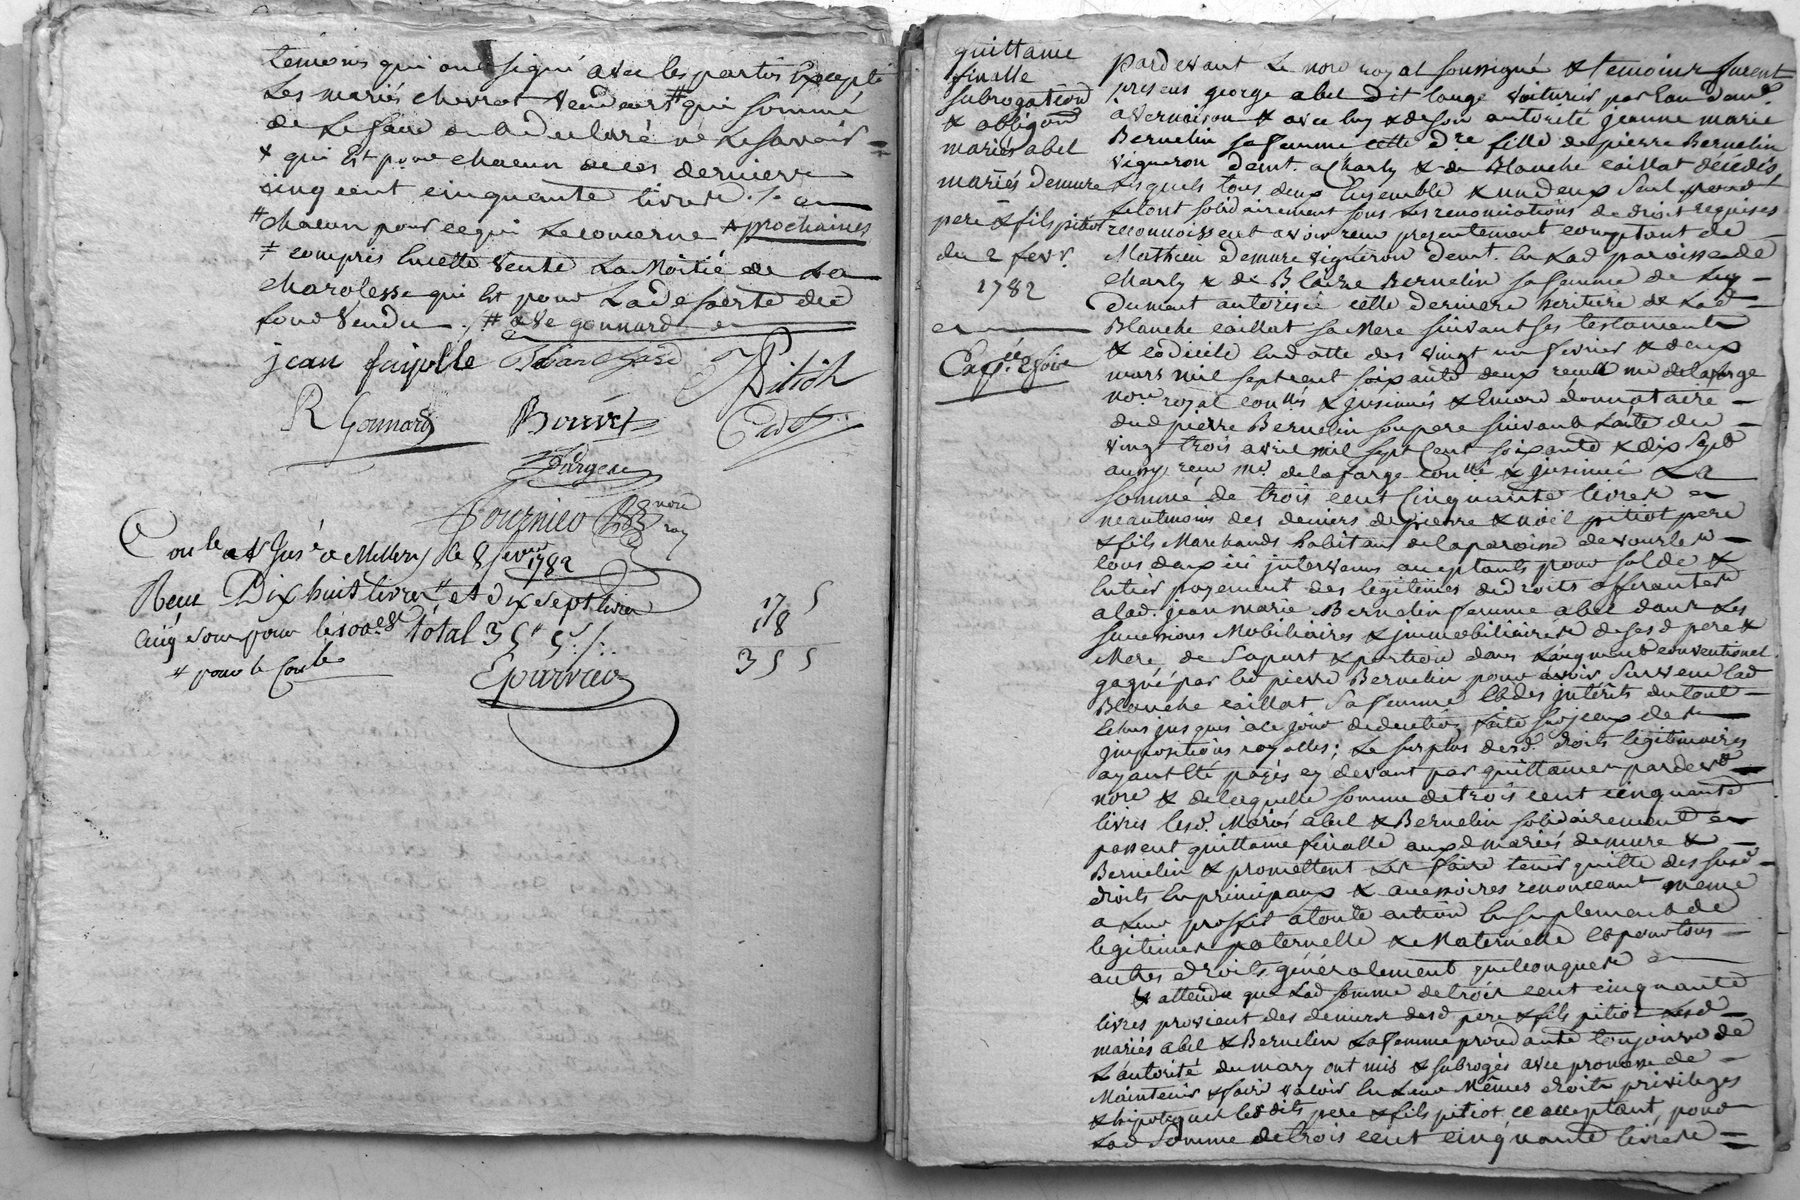 temoins qui ont signé avec les parties Excepté
Les mariés chevrot vendeurs # qui sommé
de Le faire ont declaré ne Le savoir =
x qui Est pour chacun de ces derniers
cinq cent cinquante livres ./.
# chacun pour ce qui Le concerne + prochaines
≠ compris En cette vente La Moitié de La
charolesse qui Est pour La deserte du d
fond vendu ./. # ave gonnard
jean fayolle
Pitiot
R Gonnard Bouvet
Fournieo nore roy
Conlé et Jns.é a Millery le 8 fevrier 1782
Reçu Dix huit livres et dix sept livres
Cinq sous pour le 100.e d.r total 35# 5s ./.
# pour le Conlé
17 5
18
35 5
Eparvier
quittance
finalle
subrogation
& obligaon
mariés abel
mariés demure
pere & fils pitiot
du 2 fevr.
1782
Exp.ée 2 fois
Pardevant Le nore royal soussigné & temoins furent
presens george abel dit lange voiturier par Eau dem.t
à vernaison & avec luy & de son autorité jeanne marie
Bernelin sa femme cette d.re fille de pierre Bernelin
vigneron demt. a charly & de Blanche caillat décédés
Lesquels tous deux Ensemble & un deux seul pour
Le tout solidairement sous Les renonciations de droit requises
reconnoissent avoir reçu presentement comptant de
Mathieu demure vigneron demt. En Lad paroisse de
charly & de Blaize Bernelin sa femme de Luy
dument autorisée cette derniere heritiere de Lad
Blanche caillat sa Mere suivant ses testament
& codicile En datte des vingt un fevrier & deux
mars mil sept cent soixante deux reçus me delafarge
nore royal con.lés & jnsinués & Encore donnataire
dud pierre Bernelin son pere suivant L'acte du
vingt trois avril mil sept Cent soixante & dix sept
aussy reçu me. delafarge con.lé & jnsinué La
somme de trois cent Cinquante livres
neantmoins des deniers de pierre & noël pitiot pere
& fils Marchands habitans de la paroisse de vourles
tous deux ici intervenus acceptants pour solde &
Entier payement des legitimes de droits afferantes
a lad. jean marie Bernelin femme abel dans Les
successions Mobiliaires & jmmobiliaires de ses d pere &
Mere, de sa part & portion dans L'augment conventionel
gagné par led pierre Bernelin pour avoir survecu lad
Blanche caillat sa femme Et des intérêts du tout
Echus jusques a ce jour deduction faite sujeux des
jmpositions royalles; Le surplus desd. droits legitimaires
ayant Eté payés cy devant par quittances pardevt
nore & de laquelle somme de trois cent cinquante
livres lesd. Mariés abel & Bernelin solidairement
passent quittance finalle auxd mariés demure &
Bernelin & promettent Les faire tenir quitte des susd
droits En principaux & accessoires renonceant même
a Leur proffit a toute action En suplement de
legitimes paternelle & Maternelle Et pour tous
autres droits généralement quelconques
& attendu que Lad somme de trois cent cinquante
livres provient des deniers desd pere & fils pitiot Lesd
mariés abel & Bernelin La femme procedante toujours de
L'autorité du mary ont mis & subrogés avec promesse de
Maintenir & faire valoir En Leur Mêmes droits privileges
& hipoteques lesdits pere & fils pitiot ce acceptant, pour
Lad Somme de trois cent cinquante livres